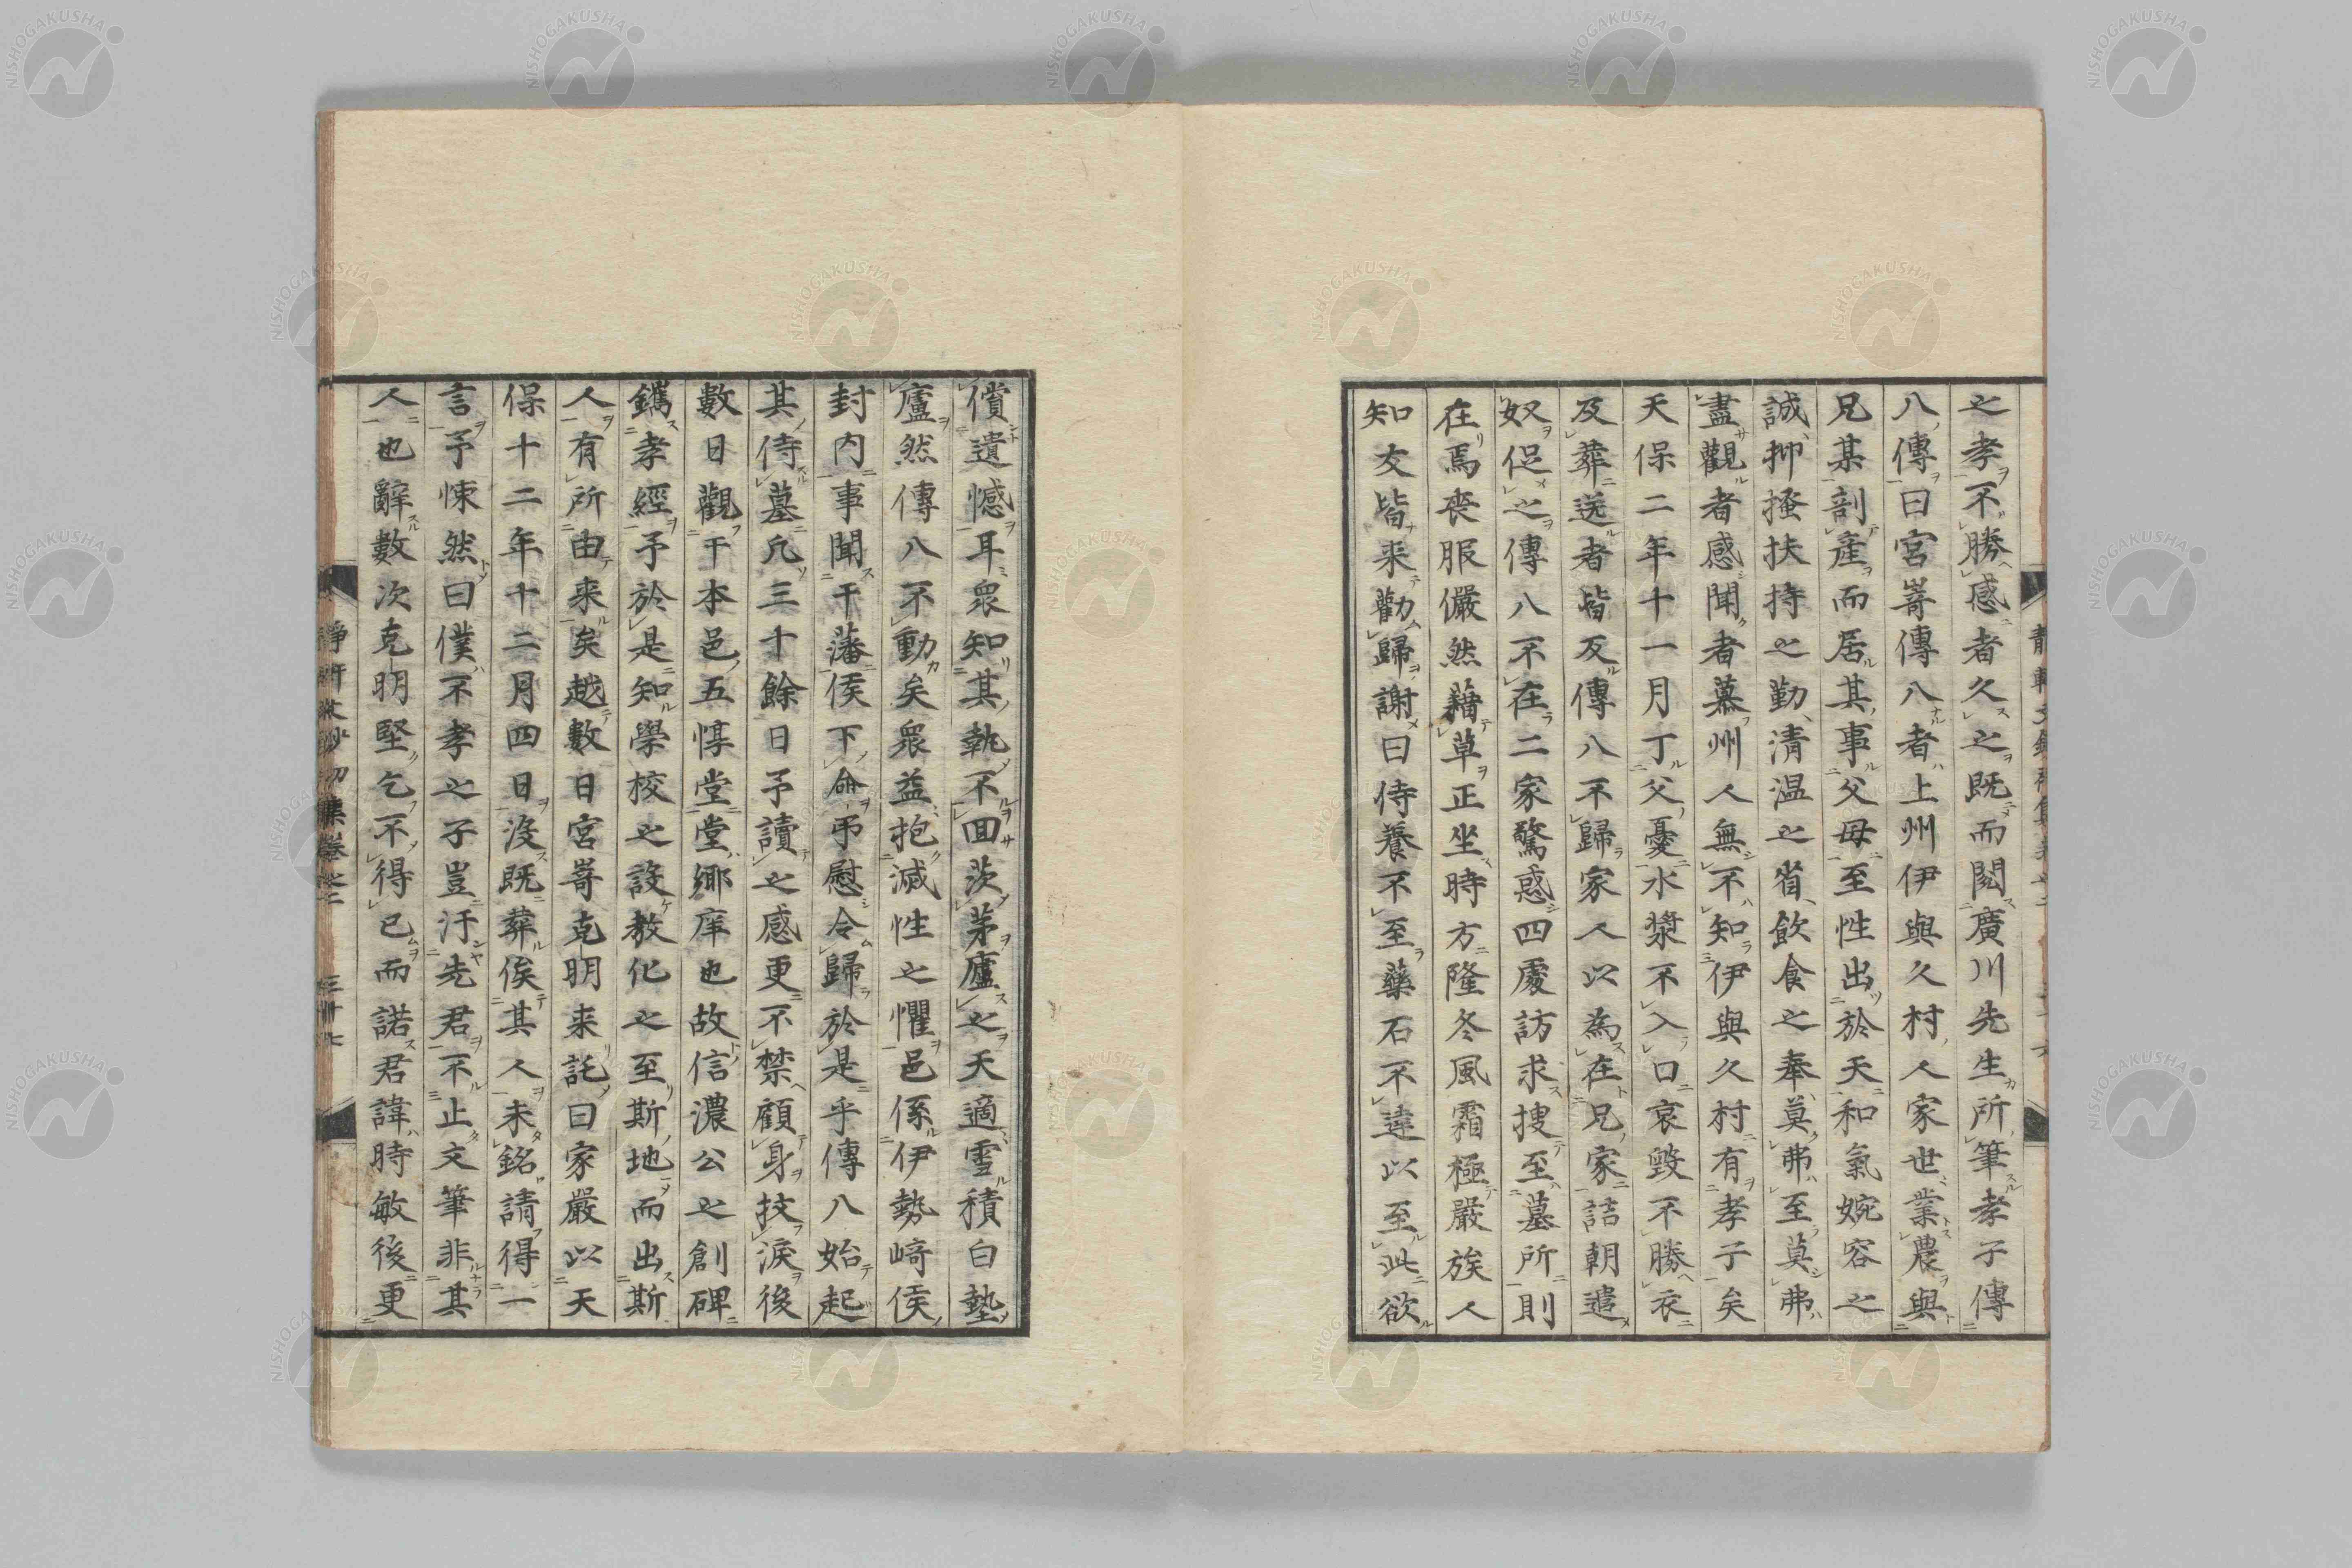 之孝不勝感者久之既而閲廣川先生所筆孝子傳
八傳曰宮嵜傳八者上州伊與久村人家世業農與
兄某剖産而居其事父母至性出於天和氣婉容之
誠抑掻扶持之勤清温之省飲食之奉莫弗至莫弗
盡觀者感聞者慕州人無不知伊與久村有孝子矣
天保二年十一月丁父憂水漿不入口哀毀不勝衣
及葬送者皆反傳八不歸家人以為在兄家詰朝遣
奴促之傳八不在二家驚惑四處訪求搜至墓所則
在焉喪服儼然藉草正坐時方隆冬風霜極嚴族人
知友皆来勸歸謝曰侍養不至藥石不違以至此欲
償遺憾耳衆知其執不回茨茅廬之天適雪積白墊
廬然傳八不動矣衆益抱滅性之懼邑係伊勢﨑侯
封内事聞于藩侯下命弔慰令歸於是乎傳八始起
其侍墓凢三十餘日予讀之感更不禁顧身抆淚後
數日觀于本邑五惇堂堂鄉庠也故信濃公之創碑
鐫孝經予於是知學校之設教化之至斯地而出斯
人有所由来矣越數日宮嵜克明来託曰家嚴以天
保十二年十二月四日沒既葬俟其人未銘請得一
言予悚然曰僕不孝之子豈汙先君不止文筆非其
人也辭數次克明堅乞不得已而諾君諱時敏後更